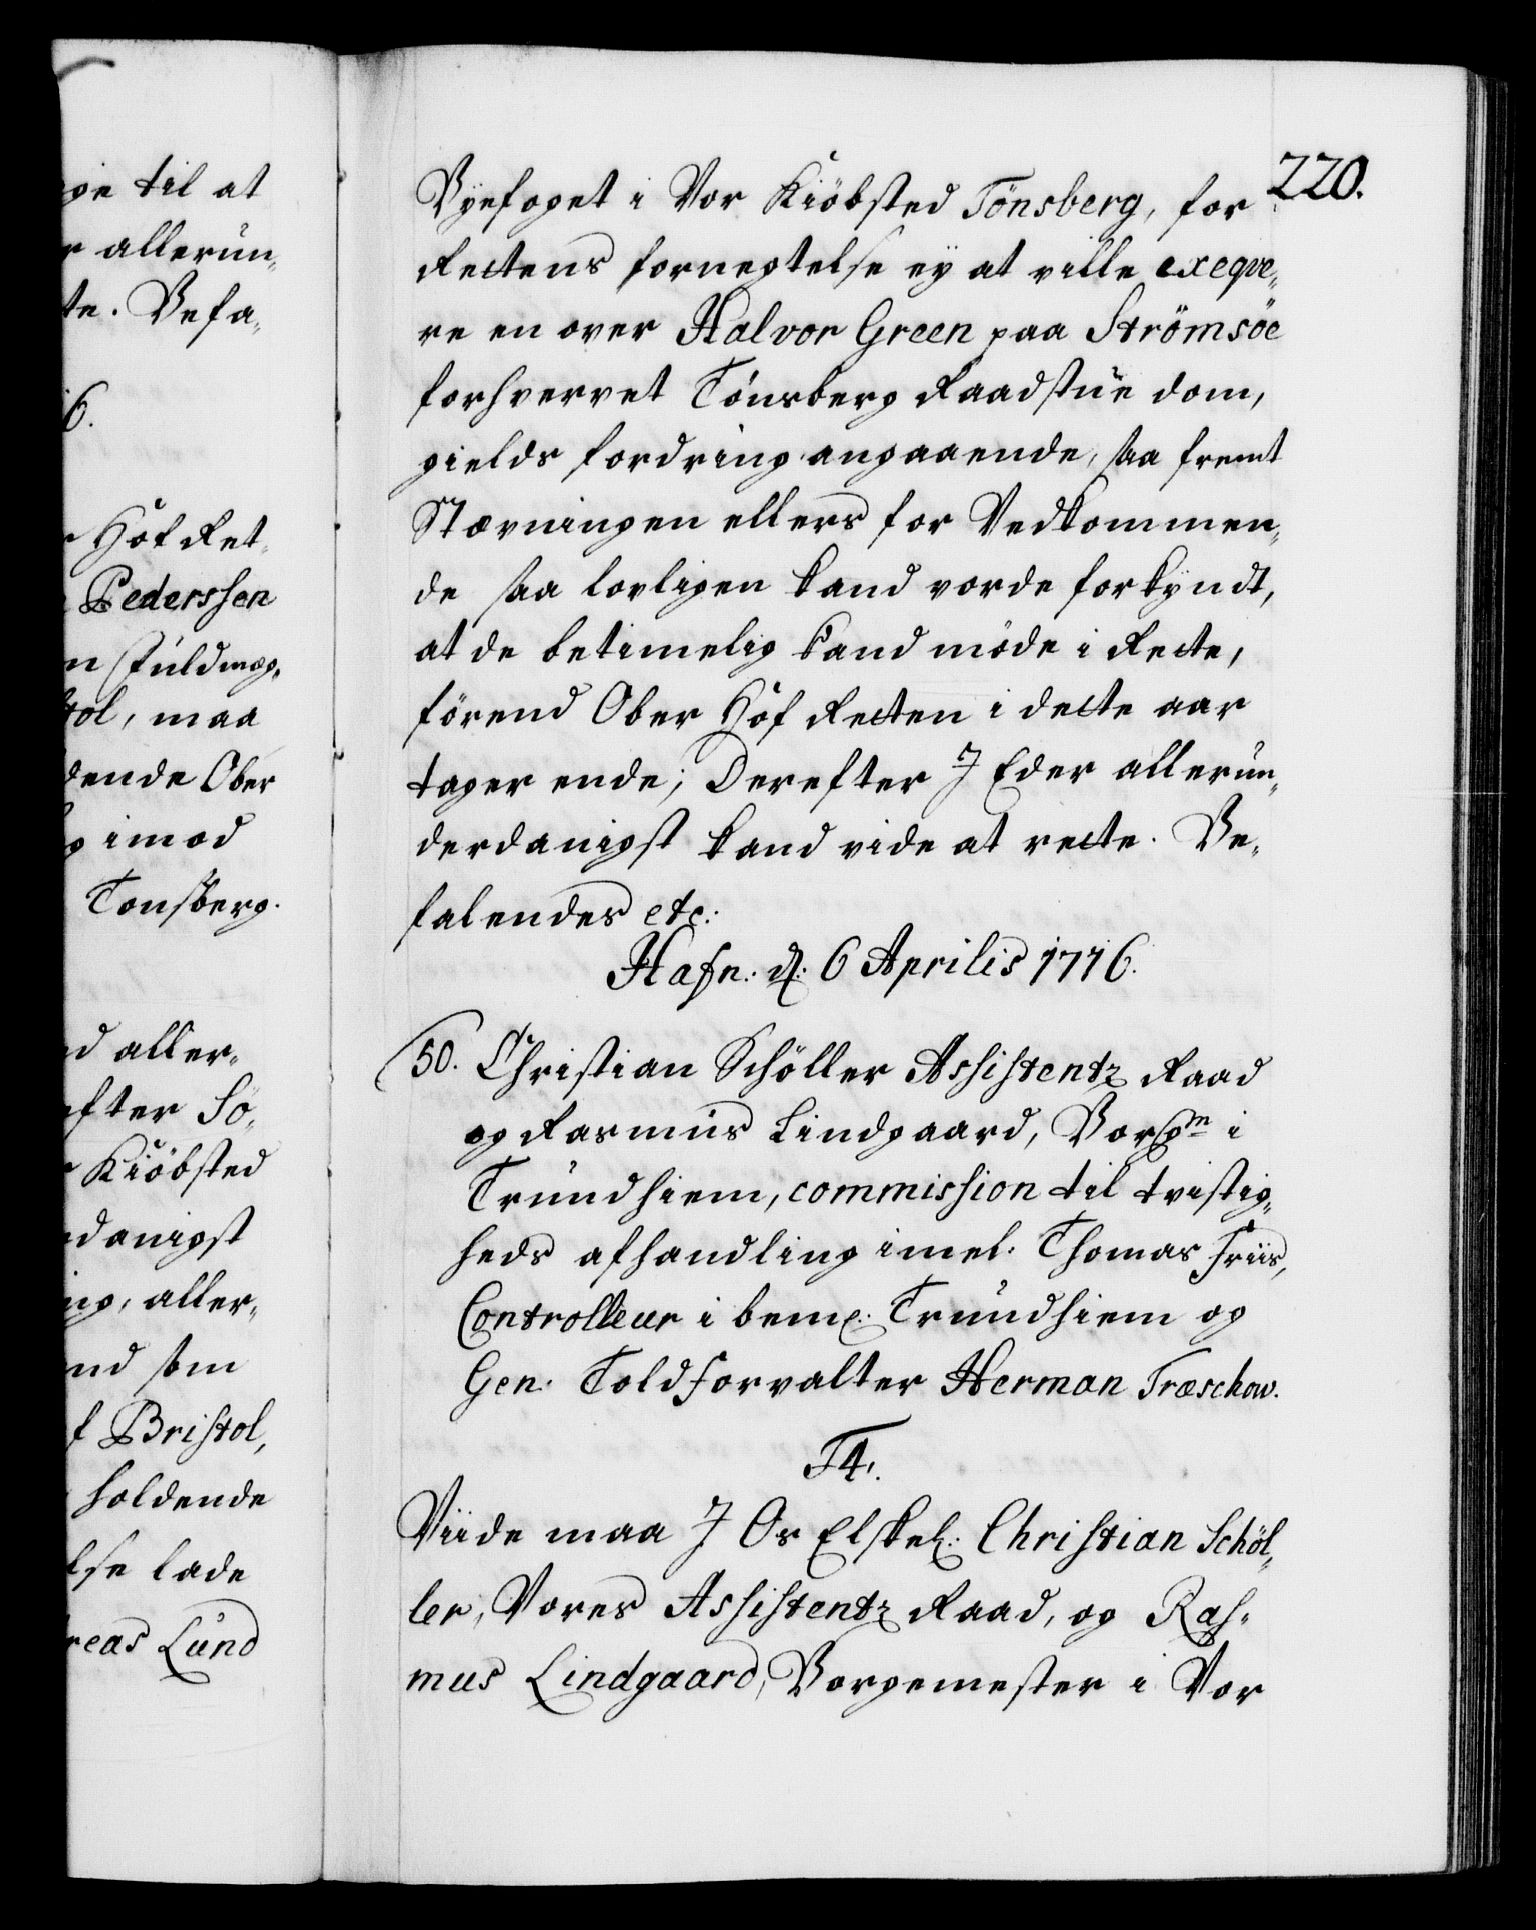 ge til at
r allerun,
te. Befa,
6.
r Hof Ret,
Pederssen
n Fuldmæg,
tol, maa
dende Ober
g imod
Tonsberg.
d aller,
efter Sö,
r Kiöbsted
danigst
ng, aller,
nd som
f Bristol,
holdende
lse lade
reas Lund
220.
Byefoget i Vor Kiöbsted Tönsberg, for
Rettens fornegtelse ey at ville exeqve,
re en over Halvor Green paa Strömsöe
forhvervet Tönsberg Raadstue dom,
gields fordring angaaende, saa fremt
Stævningen ellers for Vedkommen,
de saa lovligen kand vorde forkyndt,
at de betimelig kand möde i Rette,
förend Ober Hof Retten i dette aar
tager ende; Derefter I Eder allerun,
derdanigst kand vide at rette. Be,
falendes etc:
Hafn: d: 6 Aprilis 1716.
50. Christian Schöller Assistentz Raad
og Rasmus Lindgaard, Borgm i
Trundhiem, commission til tvistig,
heds afhandling imel. Thomas Friis,
Controlleur i bem: Trundhiem og
Gen. Toldforvalter Herman Træschow.
F4.
Viide maa I Os Elskel: Christian Schöl,
ler, Vores Assistentz Raad, og Ras,
mus Lindgaard, Borgemester i Vor